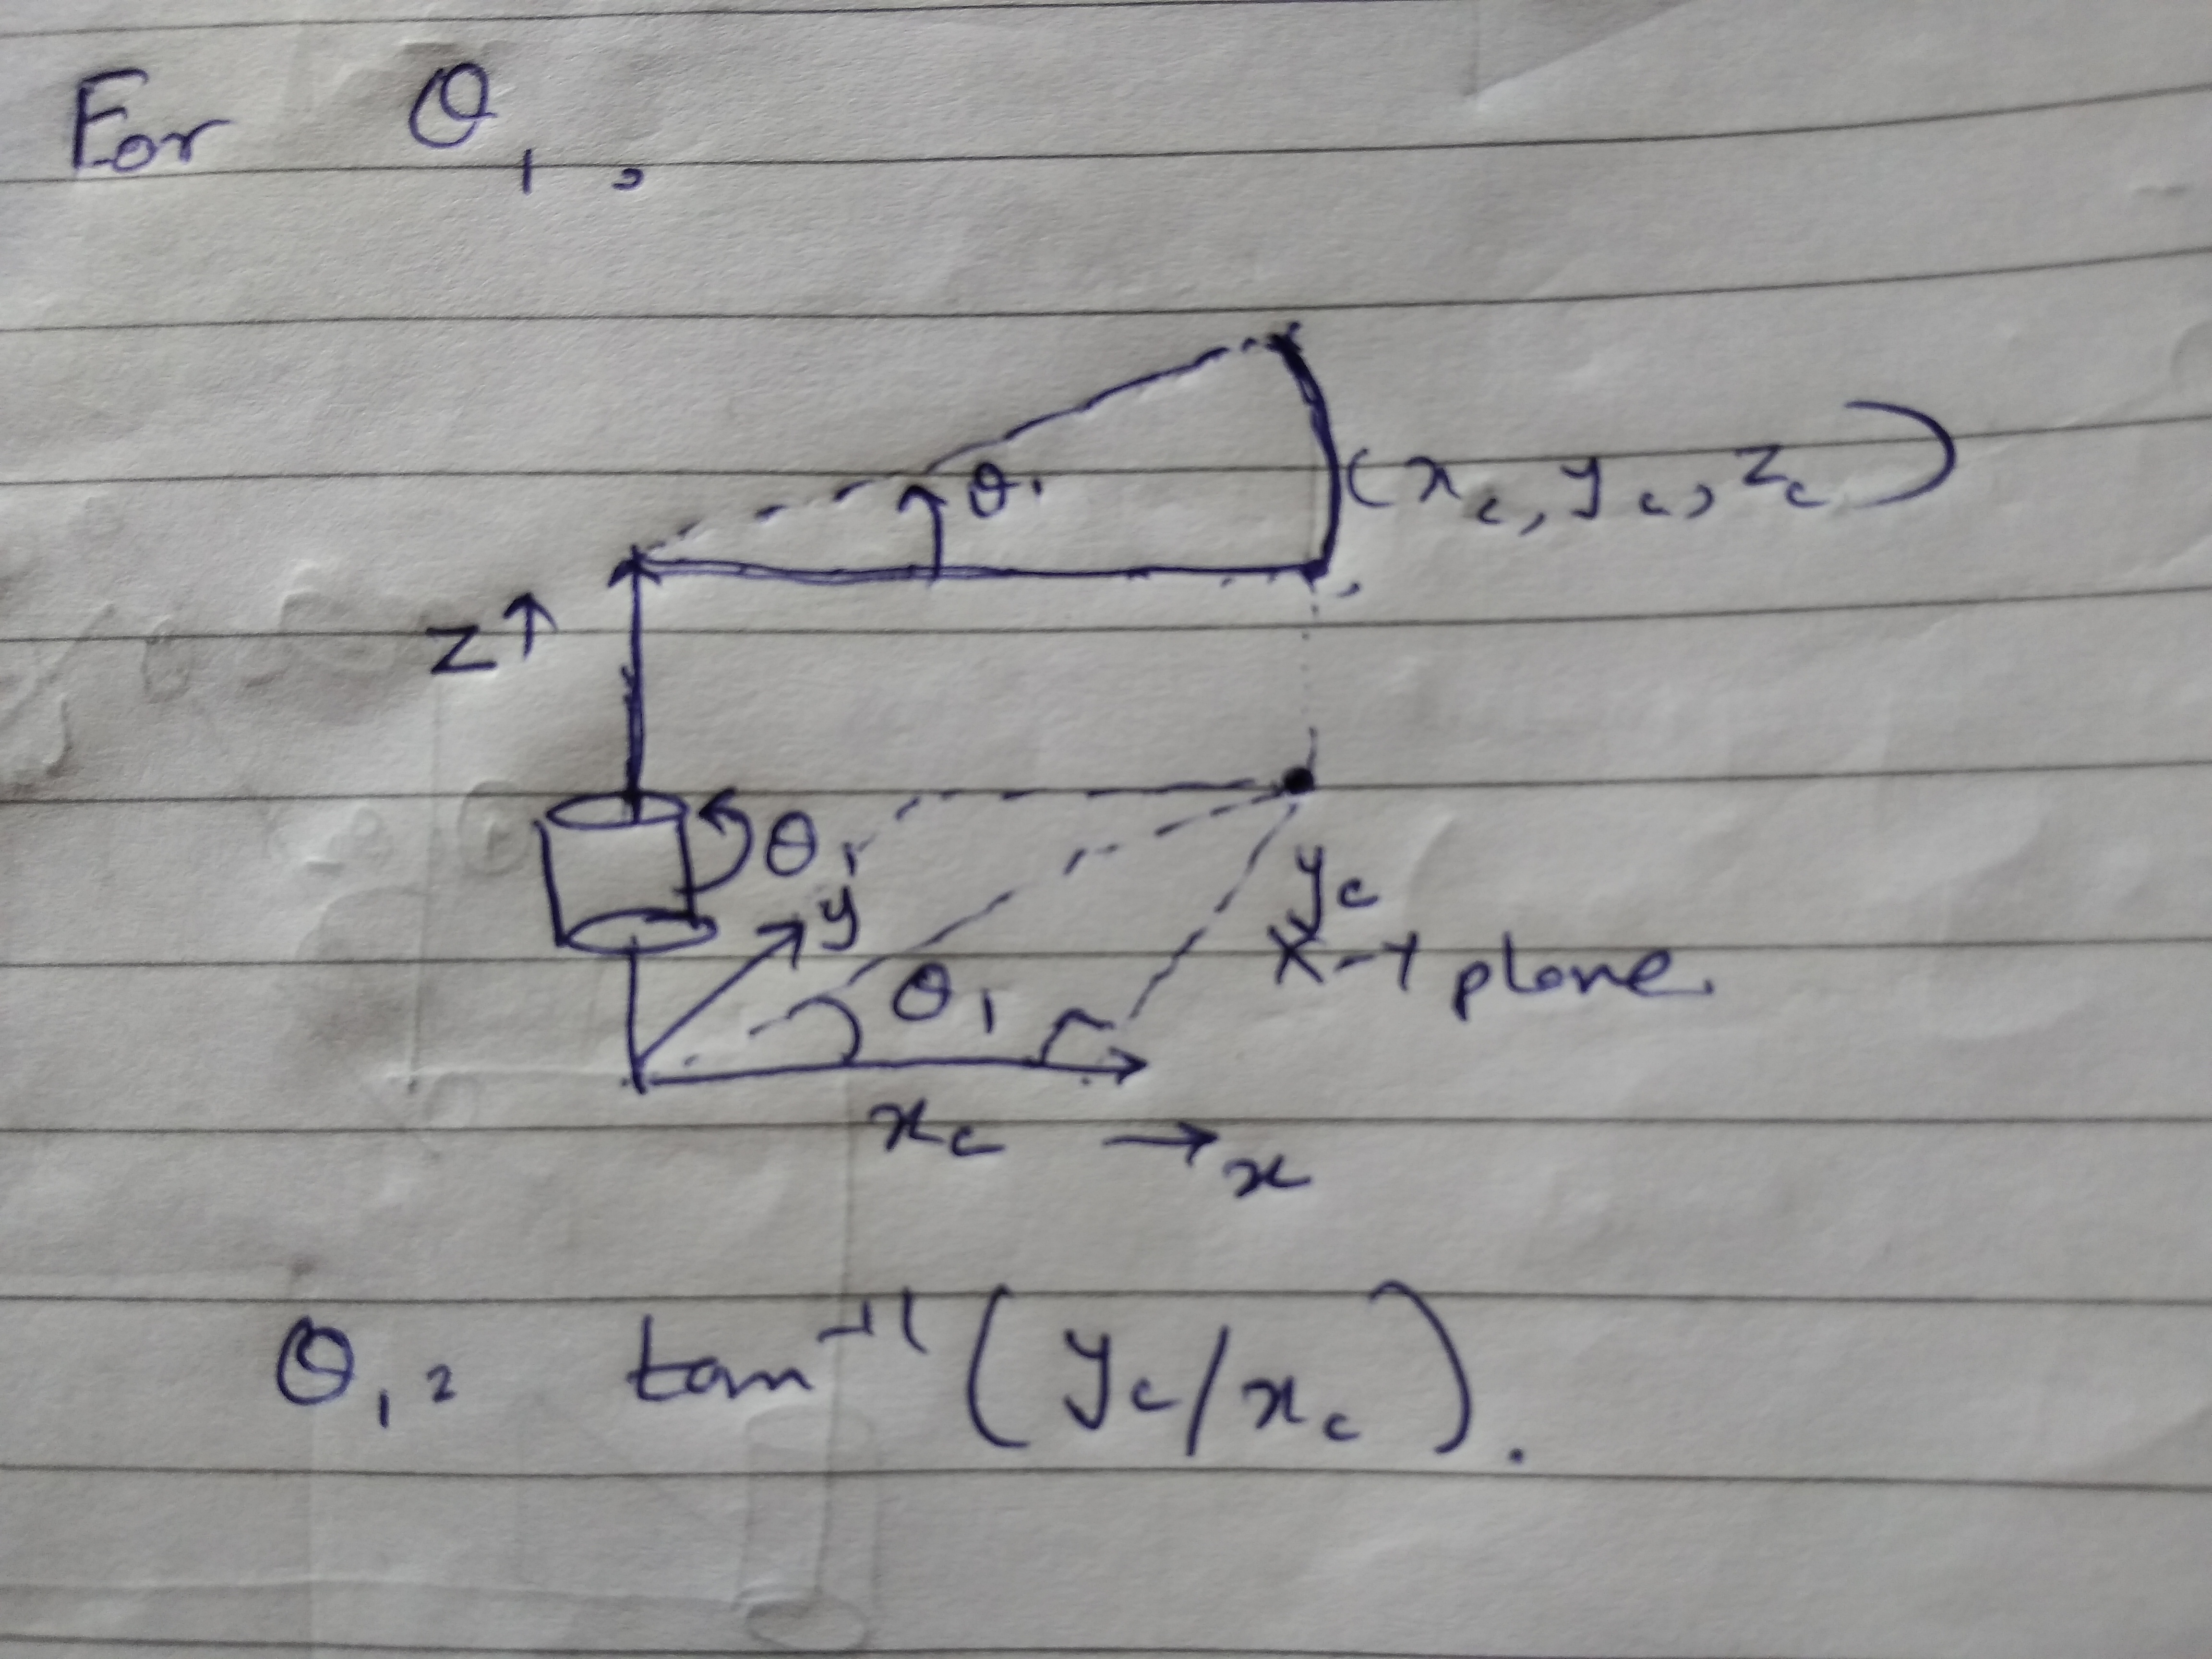 For θ₁,
θ₁
(x꜀, y꜀, z꜀)
z↑
θ₁
y
y꜀
X-Y plane.
θ₁
x꜀ → x
θ₁ = tan⁻¹(y꜀/x꜀).